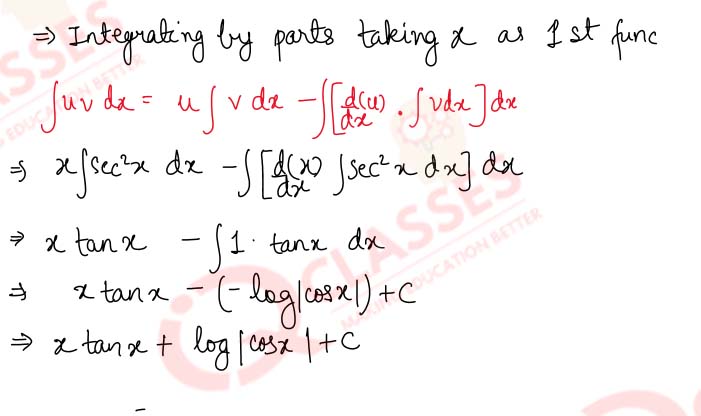 ⇒ Integrating by parts taking x as 1st func
∫uv dx = u∫v dx − ∫[d(u)/dx . ∫vdx]dx
⇒ x∫sec²x dx − ∫[d(x)/dx ∫sec²x dx] dx
⇒ x tanx − ∫1· tanx dx
⇒ x tanx − (−log|cosx|)+C
⇒ x tanx + log|cosx|+C
CLASSES
MAKING EDUCATION BETTER